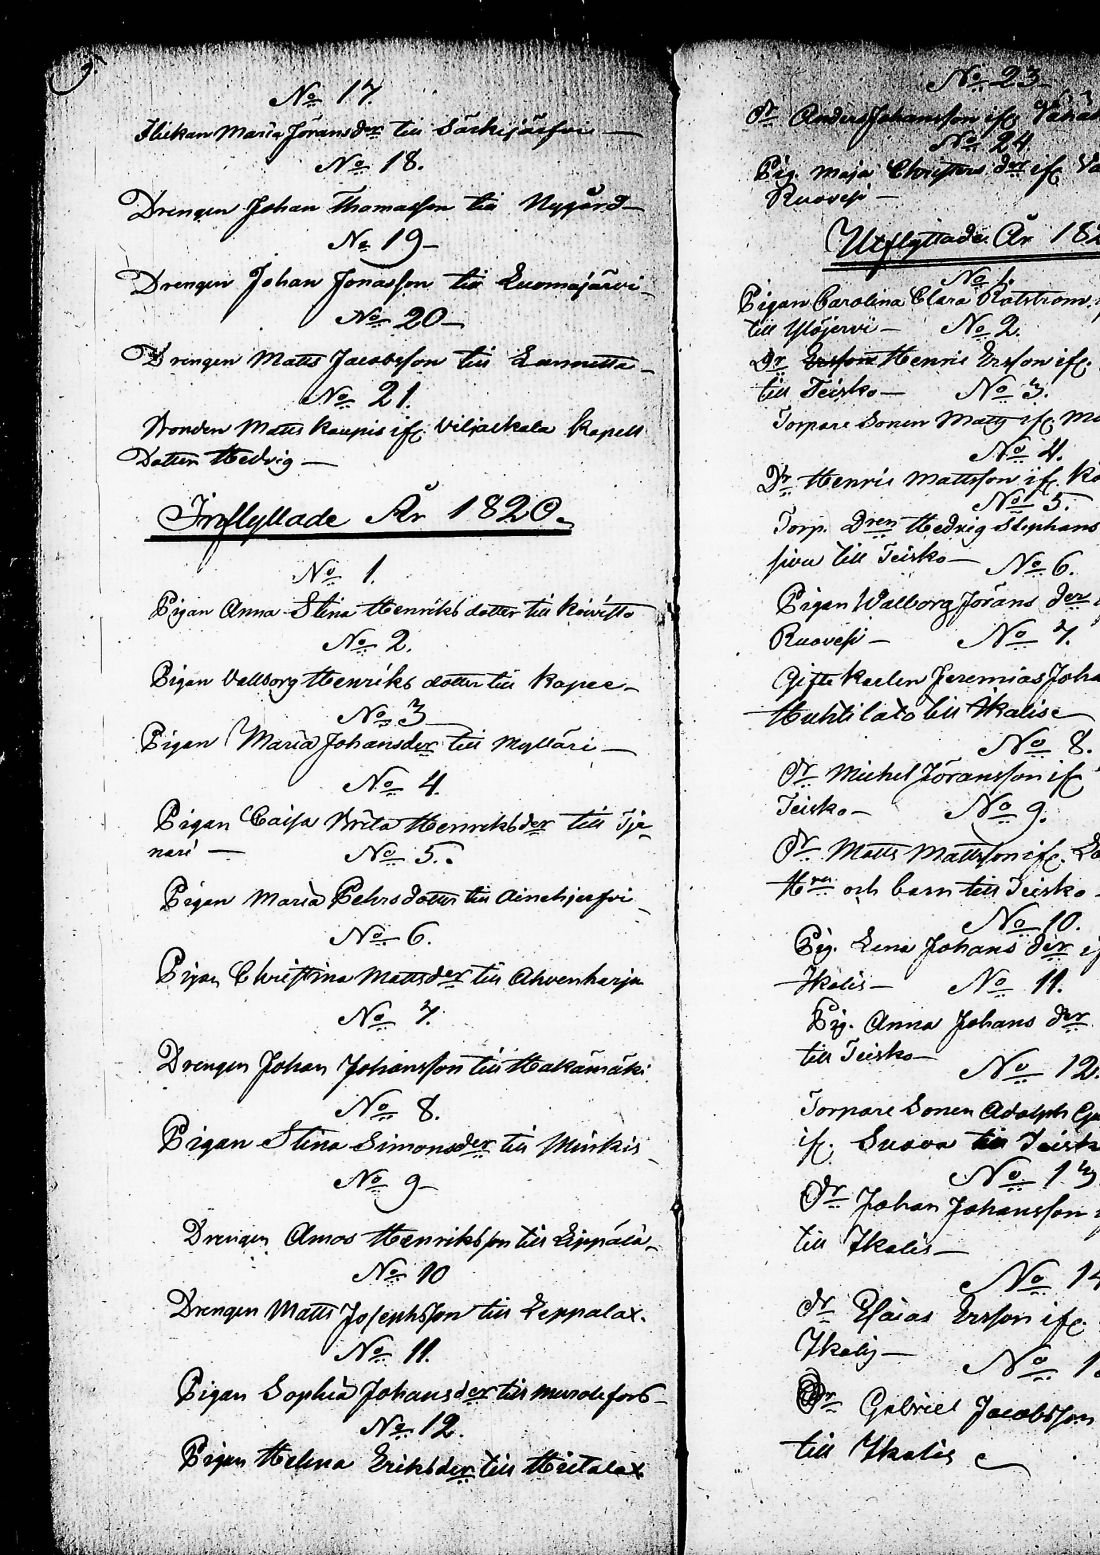 No 17.
Flickan Maria Jöransder till Särkijärfvi —
No 18.
Drengen Johan Thomasson till Nygård —
No 19 —
Drengen Johan Jonasson till Luomajärvi —
No 20 —
Drengen Matts Jacobsson till Lannetta —
No 21.
Bonden Matts Kaupis ifr. Viljackala Kapell
Dotter Hedvig —
Inflyttade År 1820.
No 1.
Pigan Anna Stina Henriks dotter till Koivisto
No 2.
Pigan Vallborg Henriks dotter till Kapee —
No 3
Pigan Maria Johansder till Mylläri —
No 4.
Pigan Caisa Brita Henriksder till Tje-
nari —
No 5.
Pigan Maria Pehrs dotter till Ainehjerfvi —
No 6.
Pigan Christina Mattsder till Ahvenharju
No 7.
Drengen Johan Johansson till Hakamäki
No 8.
Pigan Stina Simonsder till Minkis —
No 9 —
Drengen Amos Henriksson till Lippälä —
No 10
Drengen Matts Josephsson till Leppalax.
No 11.
Pigan Sophia Johansder till Murolefors —
No 12.
Pigan Helena Eriksder till Hietalax
No 23
Dr Anders Johansson ifr.
No 24
Pig. Maja Christers der ifr.
Ruovesi —
Utflyttade År
No 1.
Pigan Carolina Clara Rotstrom
till Ylöjervi —
No 2.
Dr Ersson Henric Ersson ifr.
till Teisko —
No 3.
Torpare Sonen Matts ifr.
No 4.
Dr Henric Mattsson ifr.
No 5.
Torp. Dren Hedvig Stephans
till Teisko —
No 6.
Pigan Walborg Jörans der
Ruovesi —
No 7.
Gifte Karlen Jeremias
Huhtilato till Ikalise
No 8.
Dr Michel Jöransson ifr
Teisko —
No 9.
Dr Matts Mattsson ifr.
Hru och barn till Teisko —
No 10.
Pig. Lena Johans der
Ikalis —
No 11.
Pig. Anna Johans der
till Teisko —
No 12.
Torpare Sonen Adolph
ifr. Suova till
No 13
Dr Johan Johansson
till Ikalis —
No 14
Dr Esaias Ersson ifr.
Ikalis —
No
Dr Gabriel Jacobsson
till Ikalis